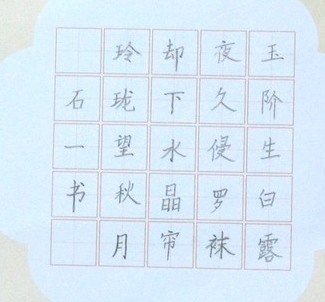 玉阶生白露
夜久侵罗袜
却下水晶帘
玲珑望秋月
石一书